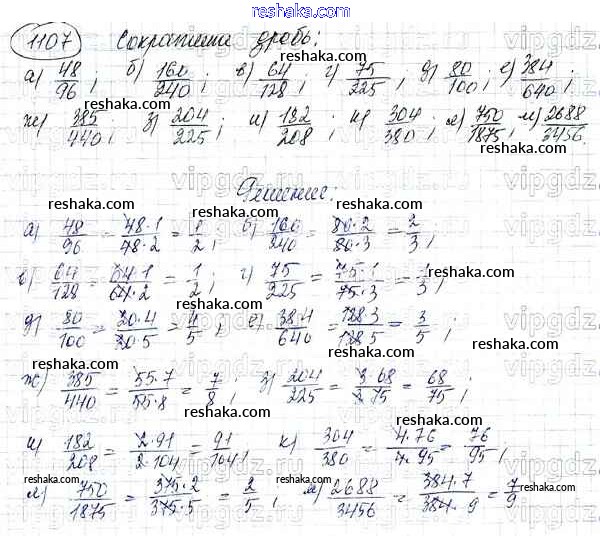 reshaka.com
1107 Сократите дробь:
а) 48/96; б) 160/240; в) 64/128; г) 75/225; д) 80/100; е) 384/640;
ж) 385/440; з) 204/225; и) 182/208; к) 304/380; л) 750/1875; м) 2688/3456.
Решение:
а) 48/96 = 48·1/48·2 = 1/2; б) 160/240 = 80·2/80·3 = 2/3;
в) 64/128 = 64·1/64·2 = 1/2; г) 75/225 = 75·1/75·3 = 1/3;
д) 80/100 = 20·4/20·5 = 4/5; е) 384/640 = 128·3/128·5 = 3/5;
ж) 385/440 = 55·7/55·8 = 7/8; з) 204/225 = 3·68/3·75 = 68/75;
и) 182/208 = 2·91/2·104 = 91/104; к) 304/380 = 4·76/4·95 = 76/95;
л) 750/1875 = 375·2/375·5 = 2/5; м) 2688/3456 = 384·7/384·9 = 7/9